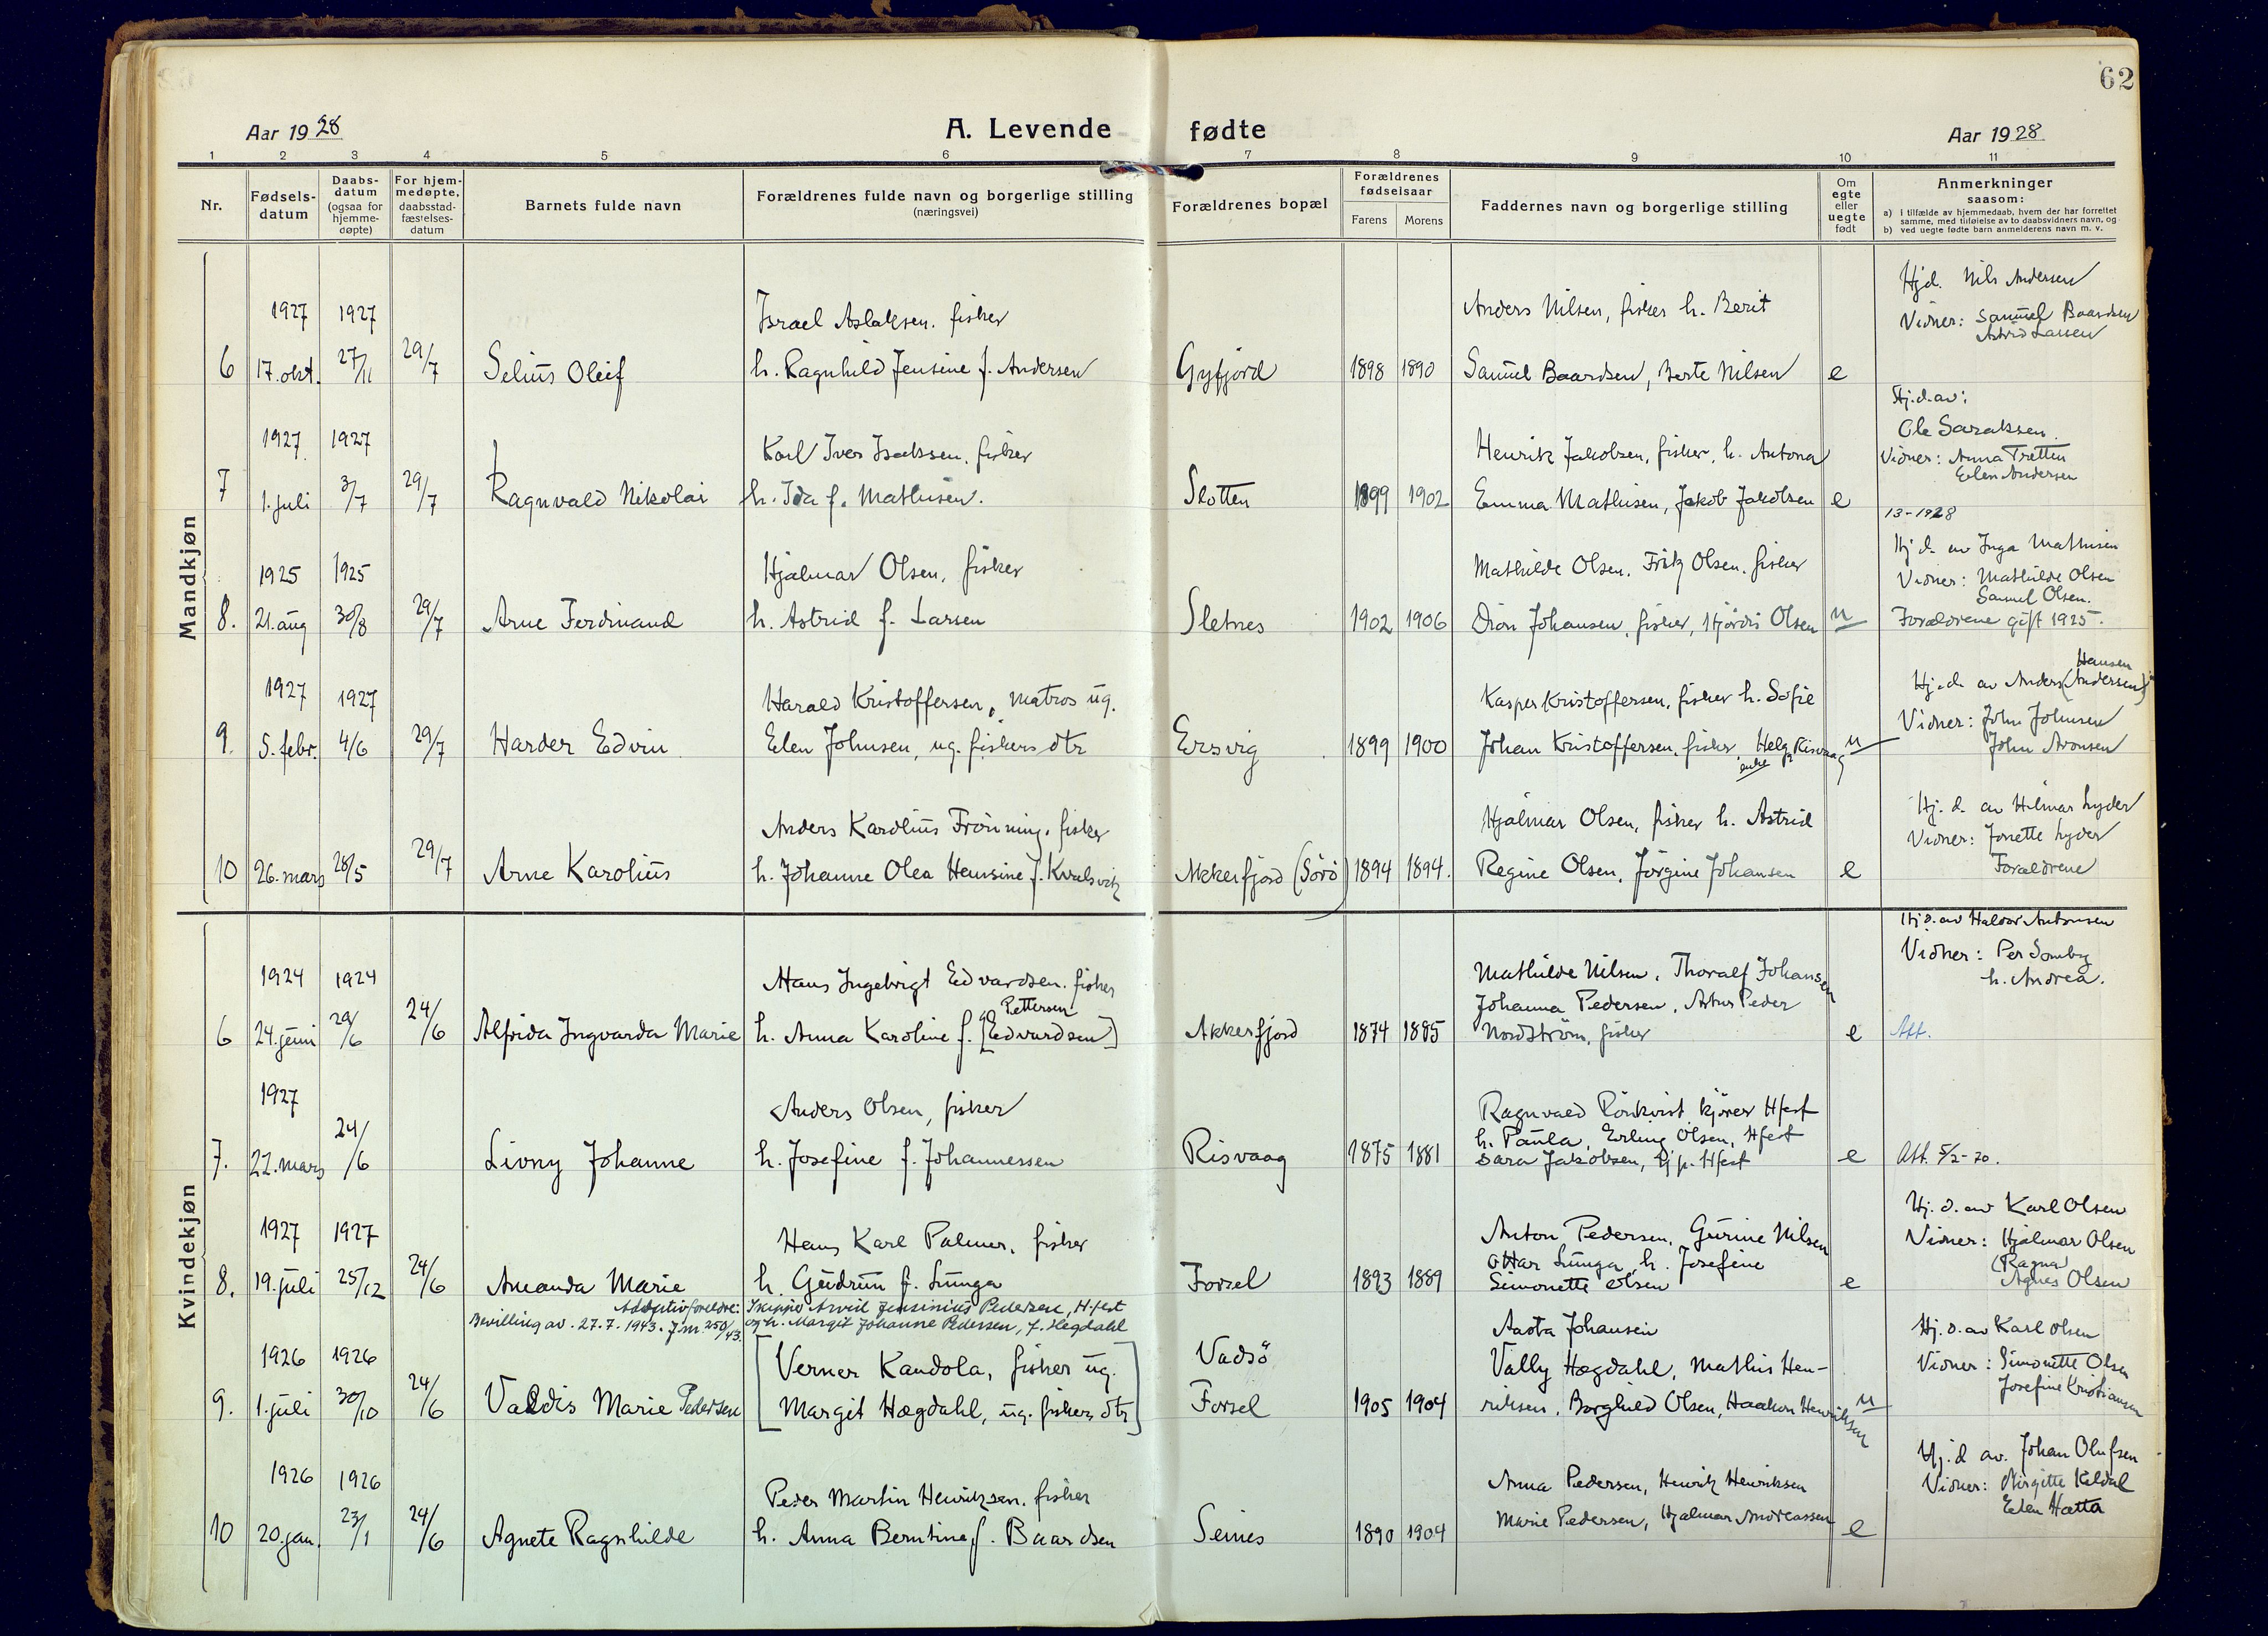 62
Aar 1928
A. Levende fødte
Aar 1928
1 2 3 4 5 6 7 8 9 10 11
Nr.
Fødsels-
datum
Daabs-
datum
(ogsaa for
hjemme-
døpte)
For hjem-
medøpte,
daabsstad-
fæstelses-
datum
Barnets fulde navn
Forældrenes fulde navn og borgerlige stilling
(næringsvei)
Forældrenes bopæl
Forældrenes
fødselsaar
Farens Morens
Faddernes navn og borgerlige stilling
Om
egte
eller
uegte
født
Anmerkninger
saasom:
a) i tilfælde av hjemmedaab, hvem der har forrettet
samme, med tilføielse av to daabsvidners navn, og
b) ved uegte fødte barn anmelderens navn m. v.
Mandkjøn
6
1927
17. okt.
1927
27/11
29/7
Selius Oleif
Israel Aslaksen. fisker
h. Ragnhild Jensine f. Andersen
Gyfjord
1898 1890
Anders Nilsen, fisker h. Berit
Samuel Baardsen, Berte Nilsen
e
Hjd. Nils Andersen
Vidner: Samuel Baardsen
Astrid Larsen
7
1927
1. juli
1927
3/7
29/7
Ragnvald Nikolai
Karl Iver Isaksen. fisker
h. Ida f. Mathisen.
Slotten
1899 1902
Henrik Jakobsen, fisker, h. Antona
Emma Mathisen, Jakob Jakobsen
e
Hj.d.av:
Ole Saraksen.
Vidner: Anna Tretten
Elen Andersen
13-1928
8.
1925
21. aug
1925
30/8
29/7
Arne Ferdinand
Hjalmar Olsen, fisker
h. Astrid f. Larsen
Sletnes
1902 1906
Mathilde Olsen. Fritz Olsen. fisker
Dion Johansen, fisker, Hjørdis Olsen
u
Hj d. av Inga Mathisen
Vidner: Mathilde Olsen
Samuel Olsen.
Forældrene gift 1925.
9.
1927
5. febr.
1927
4/6
29/7
Harder Edvin
Harald Kristoffersen, matros ug.
Elen Johnsen, ug. fiskers dtr
Ersvig
1899 1900
Kasper Kristoffersen, fisker h. Sofie
Johan Kristoffersen, fisker, Helg. Risvaag
enke
u
Hansen
Hj.d. av Anders (Andersen)
Vidner: John Johnsen
John Aronsen
10
26. mars
28/5
29/7
Arne Karolius
Anders Karolius Frønning. fisker
h. Johanne Olea Hensine f. Kvalsvik
Akkerfjord (Sørø)
1894 1894.
Hjalmar Olsen, fisker h. Astrid
Regine Olsen, Jørgine Johansen
e
Hj. d. av Hilmar Lyder
Vidner: Jonette Lyder
Forældrene
Kvindekjøn
6
1924
24. juni
1924
29/6
24/6
Alfrida Ingvarda Marie
Hans Ingebrigt Edvardsen. fisker
Pettersen
h. Anna Karoline f. [Edvardsen]
Akkerfjord
1874 1885
Mathilde Nilsen, Thoralf Johansen
Johanna Pedersen, Artur Peder
Nordstrøm, fisker
e
Hj d. av Haldor Antonsen
Vidner: Per Somby
h. Andrea.
Att.
7.
1927
22. mars
24/6
Livny Johanne
Anders Olsen, fisker
h. Josefine f. Johannessen
Risvaag
1875 1881
Ragnvald Rønkvist kjører Hfest
h. Paula, Erling Olsen, Hfest
Sara Jakobsen, tj.p. Hfest
e
Att. 5/2-70.
8.
1927
19. juli
1927
25/12
24/6
Amanda Marie
Hans Karl Palmer, fisker
h. Gudrun f. Lunga
Forsøl
1893 1889
Anton Pedersen, Gurine Nilsen
Ottar Lunga, h. Josefine
Simonette Olsen
e
Hj. d. av Karl Olsen
Vidner: Hjalmar Olsen
(Ragna)
Agnes Olsen
Adoptivforeldre: Skipper Arvid Jensinius Pedersen, H.fest
Bevilling av 27.7.1943. J.nr. 250/43. og h. Margit Johanne Pedersen, f. Hegdahl
9.
1926
1. juli
1926
30/10
24/6
Valdis Marie Pedersen
[Verner Kandola, fisker ug.
Margit Hægdahl, ug. fiskers dtr]
Vadsö
Forsøl
1905 1904
Aasta Johansen
Vally Hægdahl, Mathis Hen-
riksen, Borghild Olsen, Haakon Henriksen
u
Hj. d. av Karl Olsen
Vidner: Simonette Olsen
Josefine Kristiansen
10
1926
20. jan.
1926
23/1
24/6
Agnete Ragnhilde
Peder Martin Henriksen. fisker
h. Anna Berntine f. Baardsen
Seines
1890 1904
Anna Pedersen, Henrik Henriksen
Marie Pedersen, Hjalmar Andreassen
e
Hj. d av. Johan Olufsen
Vidner: Birgitte Keldal
Elen Hætta